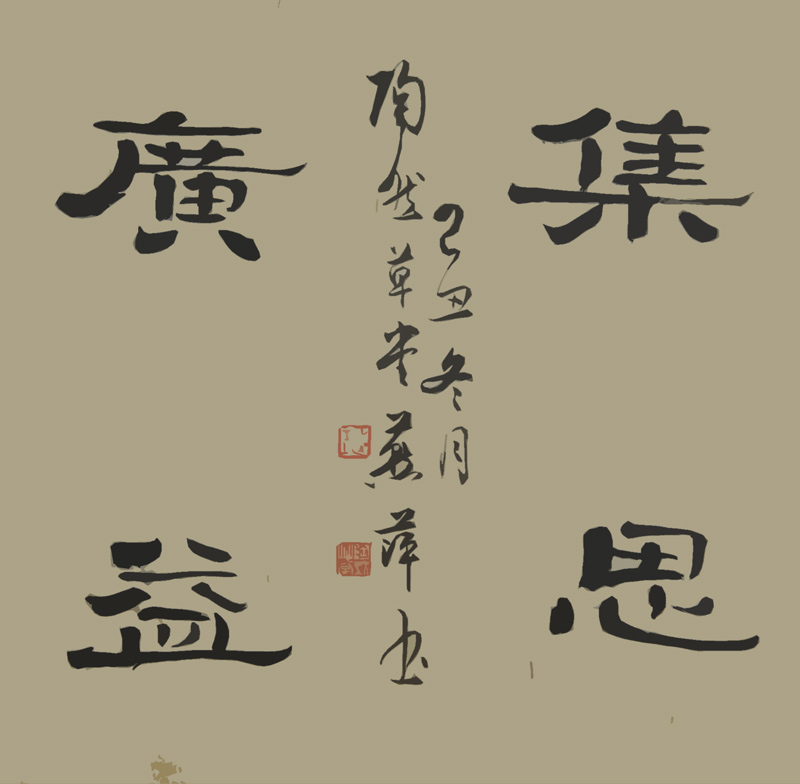 集思
廣益
己丑冬月
陶然草堂燕萍书